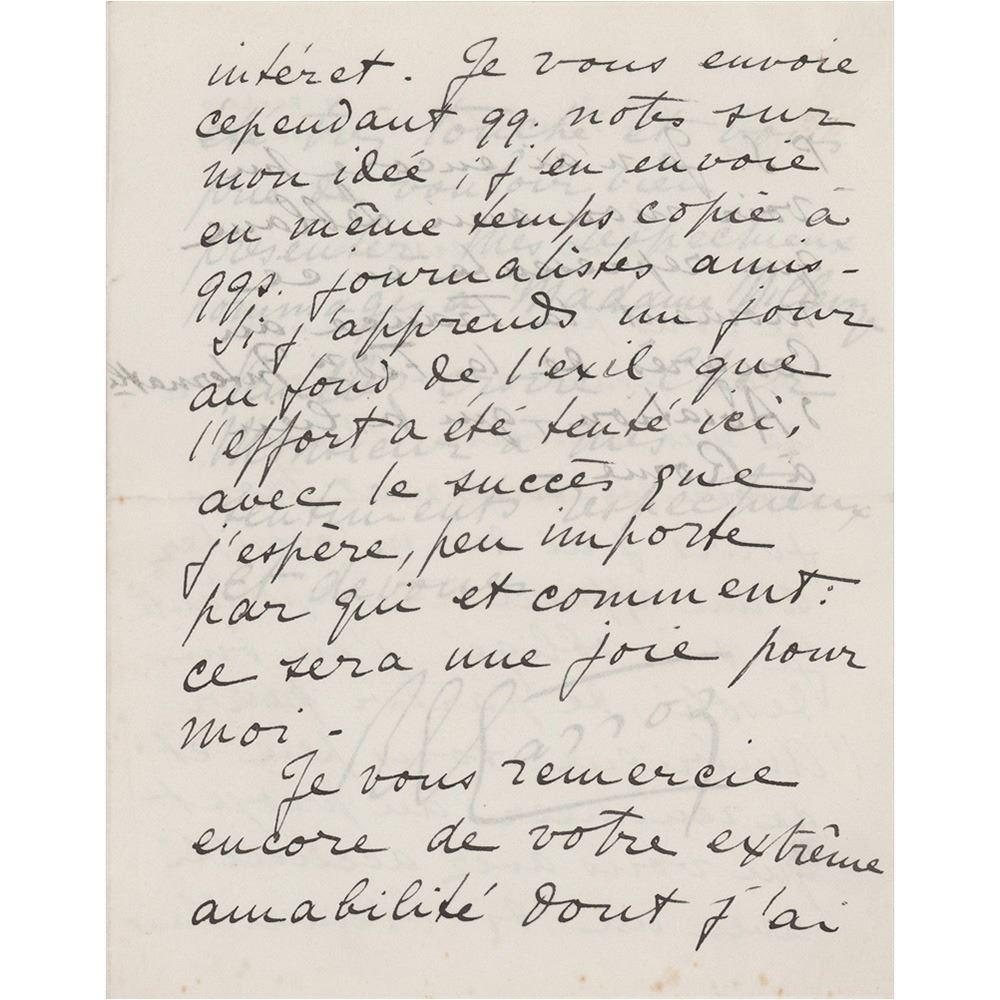 intéret. Je vous envoie
cependant qq. notes sur
mon idée, j'en envoie
en même temps copie à
qqs. journalistes amis -
Si j'apprends un jour
au fond de l'exil que
l'effort a été tenté ici,
avec le succès que
j'espère, peu importe
par qui et comment:
ce sera une joie pour
moi -
Je vous remercie
encore de votre extrême
amabilité dont j'ai